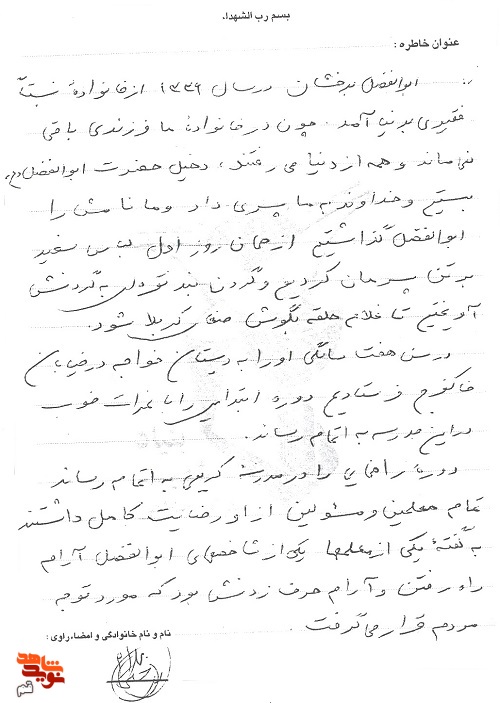 بسم رب الشهداء
عنوان خاطره :
ابوالفضل بدخشان در سال ۱۳۳۹ از خانوادهٔ نسبتاً
فقیری بدنیا آمد. چون در خانوادهٔ ما فرزندی باقی
نمی ماند و همه از دنیا می رفتند، دخیل حضرت ابوالفضل (ع)
بستیم و خداوند به ما پسری داد و ما نامش را
ابوالفضل گذاشتیم از همان روز اول لباس سفید
بر تن پسرمان کردیم و گردن بند به گردنش
آویختیم تا غلام حلقه بگوش کربلا شود.
در سن هفت سالگی او را به دبستان خواجه در خیابان
خاکفرج فرستادیم دوره ابتدایی را با نمرات خوب
در این مدرسه به اتمام رساند.
دورهٔ راهنمایی را در مدرسه کریمی به اتمام رساند
تمام معلمین و مسئولین از او رضایت کامل داشتند
به گفتهٔ یکی از معلمها یکی از شاخصهای ابوالفضل آرام
راه رفتن و آرام حرف زدنش بود که مورد توجه
مردم قرار می گرفت.
نام و نام خانوادگی و امضاء راوی :
نوید شاهد